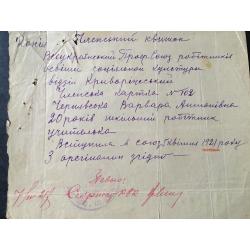 Копія Членський квиток
Всеукраїнський Профсоюз робітників
освіти соціальної культури
відділ Криворожський
Членська картка № 702
Чернявська Варвара Антонівна
20 років шкільний робітник
учителька
Вступила в союз 1921 року
З оригіналом згідно
Секретар